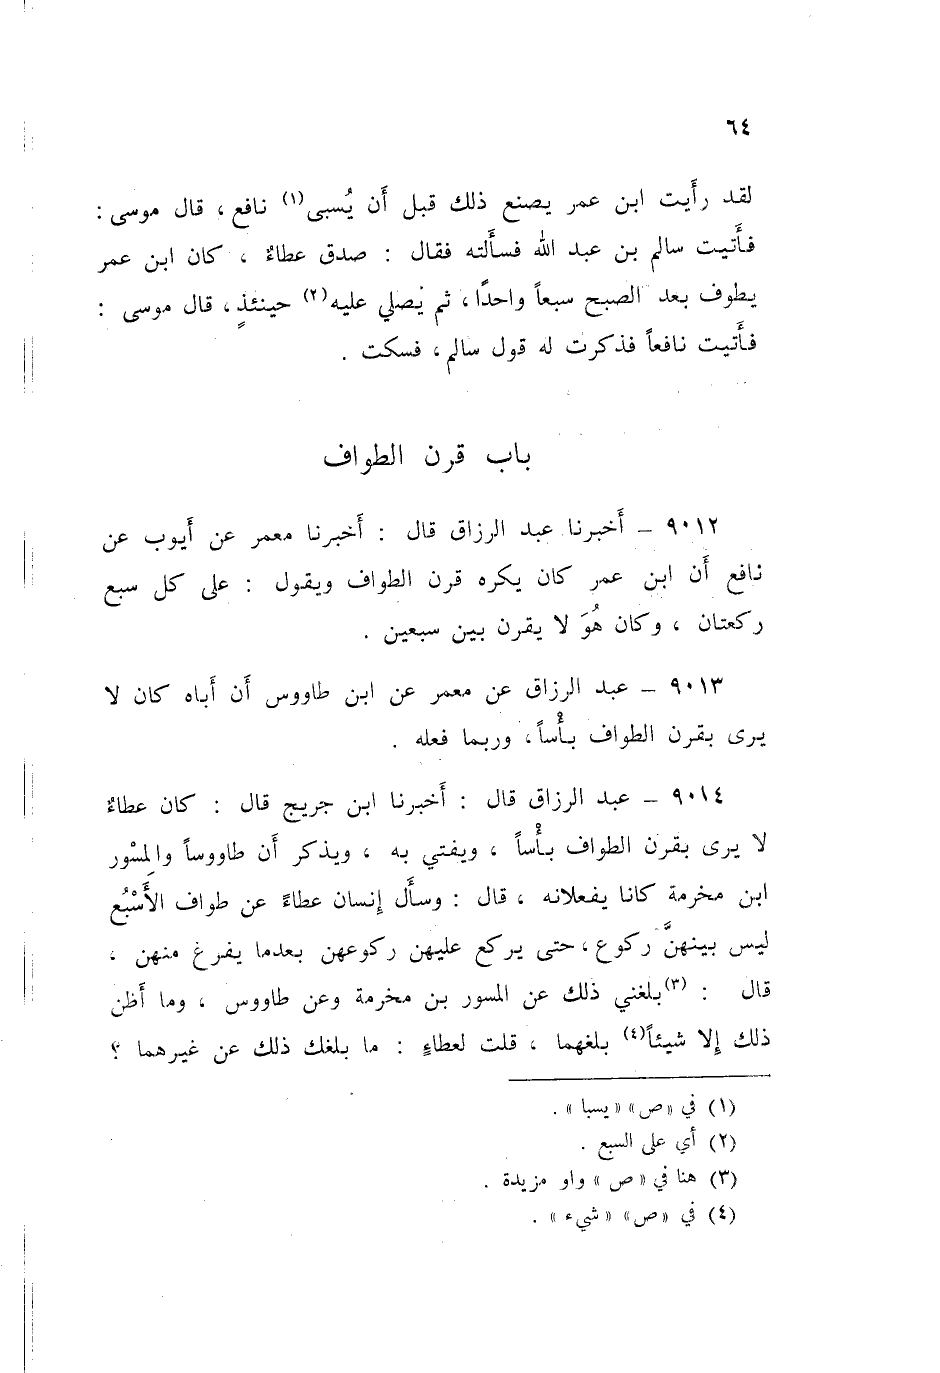 ٦٤
لقد رأَيت ابن عمر يصنع ذلك قبل أَن يُسبى(١) نافع ، قال موسى :
فأَتيت سالم بن عبد الله فسأَلته فقال : صدق عطاءٌ ، كان ابن عمر
يطوف بعد الصبح سبعاً واحدًا ، ثم يُصلي عليه(٢) حينئذٍ ، قال موسى :
فأَتيت نافعاً فذكرت له قول سالم ، فسكت .
باب قرن الطواف
٩٠١٢ – أَخبرنا عبد الرزاق قال : أَخبرنا معمر عن أَيوب عن
نافع أَن ابن عمر كان يكره قرن الطواف ويقول : على كل سبع
ركعتان ، وكان هُوَ لا يقرن بين سبعين .
٩٠١٣ – عبد الرزاق عن معمر عن ابن طاووس أَن أَباه كان لا
يرى بقرن الطواف بأْساً ، وربما فعله .
٩٠١٤ – عبد الرزاق قال : أَخبرنا ابن جريج قال : كان عطاءٌ
لا يرى بقرن الطواف بأْساً ، ويفتي به ، ويذكر أَن طاووساً والمِسْور
ابن مخرمة كانا يفعلانه ، قال : وسأَل إِنسان عطاءً عن طواف الأَسْبُع
ليس بينهنَّ ركوع ، حتى يركع عليهن ركوعهن بعدما يفرغ منهن ،
قال : (٣)بلغني ذلك عن المسور بن مخرمة وعن طاووس ، وما أَظن
ذلك إِلا شيئاً(٤) بلغهما ، قلت لعطاءٍ : ما بلغك ذلك عن غيرهما ؟
(١) في «ص» «يسبا» .
(٢) أي على السبع .
(٣) هنا في «ص» واو مزيدة .
(٤) في «ص» «شيء» .